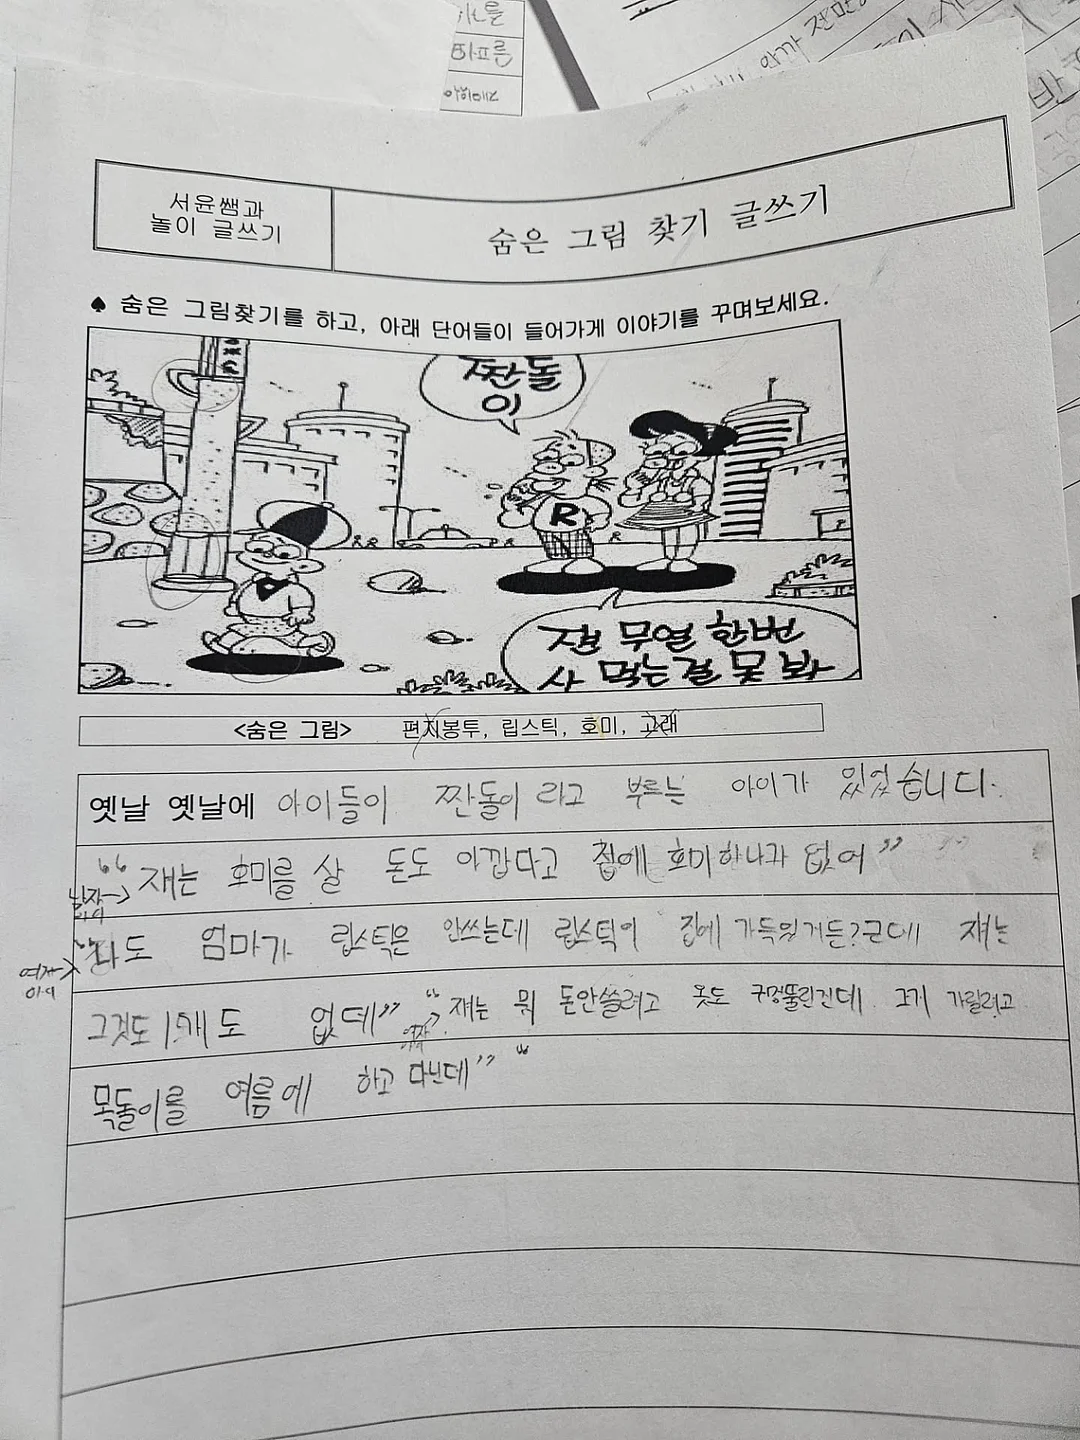 서윤쌤과
놀이 글쓰기
숨은 그림 찾기 글쓰기
♠ 숨은 그림찾기를 하고, 아래 단어들이 들어가게 이야기를 꾸며보세요.
짠돌
이
R
쟨 무얼 한번
사 먹는걸 못 봐
<숨은 그림> 편지봉투, 립스틱, 호미, 고래
옛날 옛날에 아이들이 짠돌이 라고 부르는 아이가 있었습니다.
남자→ "쟤는 호미를 살 돈도 아깝다고 집에 호미하나가 없어"
아이
여자→ "나도 엄마가 립스틱은 안쓰는데 립스틱이 집에 가득있거든?근데 쟤는
아이
그것도 1개도 없데" "쟤는 뭐 돈안쓸려고 옷도 구멍뚫린건데 그거 가릴려고
목돌이를 여름에 하고 다닌데"